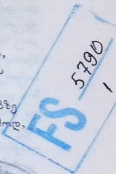 FS
5790
1